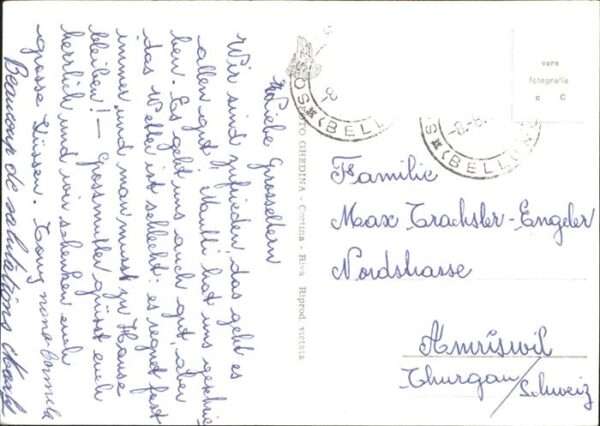 Liebe Grosseltern
Wir sind zufrieden das geht es
allen gut, Mutti hat uns geschrie
ben. Es geht uns auch gut, aber
das Wetter ist schlecht: es regnet fast
immer und man musst zu Hause
bleiben! – Grossmutter grüsst euch
herzlich und wir schenken euch
grosse Küssen.
Beaucoup de salutations
FOTO GHEDINA - Cortina - Riva Riprod. vietata
BELLUNO
BELLUNO
vera
fotografia
Familie
Max Trachsler-Engeler
Nordstrasse
Amriswil
Thurgau/Schweiz